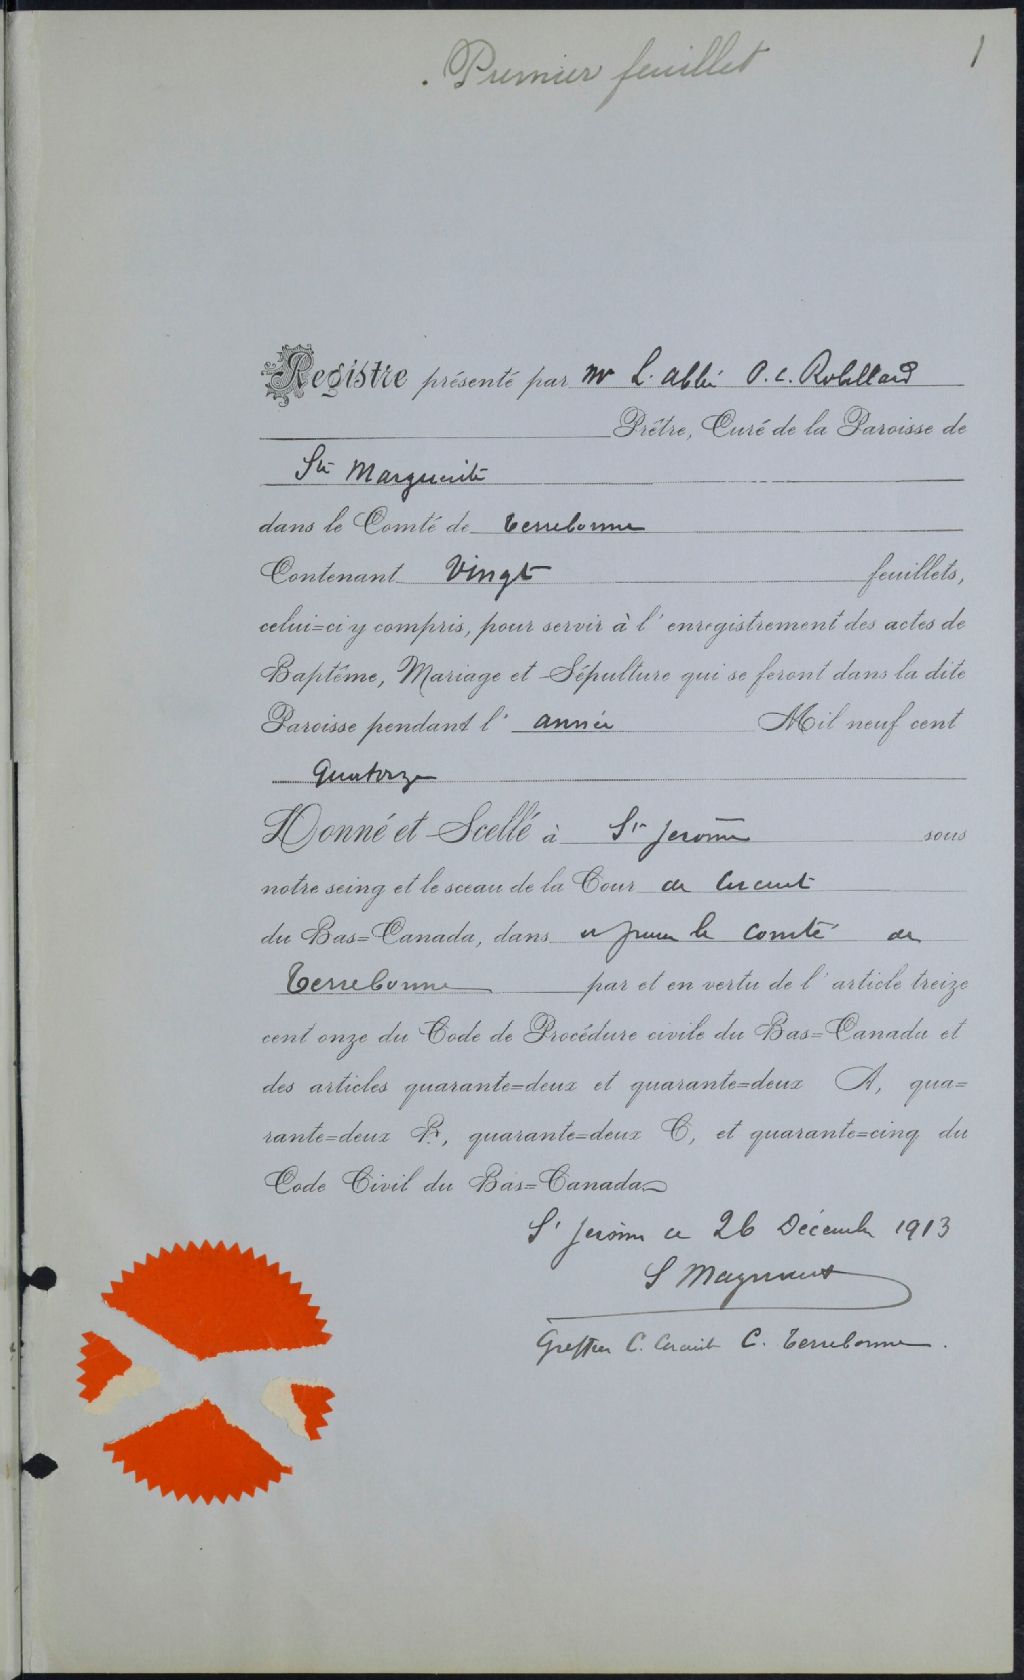 Premier feuillet
1
Registre présenté par Mr L. abbé O. C. Robillard
Prêtre, Curé de la Paroisse de
Ste Marguerite
dans le Comté de Terrebonne
Contenant Vingt feuillets,
celui=ci y compris, pour servir à l'enregistrement des actes de
Baptême, Mariage et Sépulture qui se feront dans la dite
Paroisse pendant l'année Mil neuf cent
Quatorze
Donné et Scellé à St Jerome sous
notre seing et le sceau de la Cour de Circuit
du Bas=Canada, dans et pour le comté de
Terrebonne par et en vertu de l'article treize
cent onze du Code de Procédure civile du Bas=Canada et
des articles quarante=deux et quarante=deux A, qua=
rante=deux B, quarante=deux C, et quarante=cinq du
Code Civil du Bas=Canada
St Jerôme ce 26 Décembre 1913
S Magnant
Greffier C. Circuit C. Terrebonne.